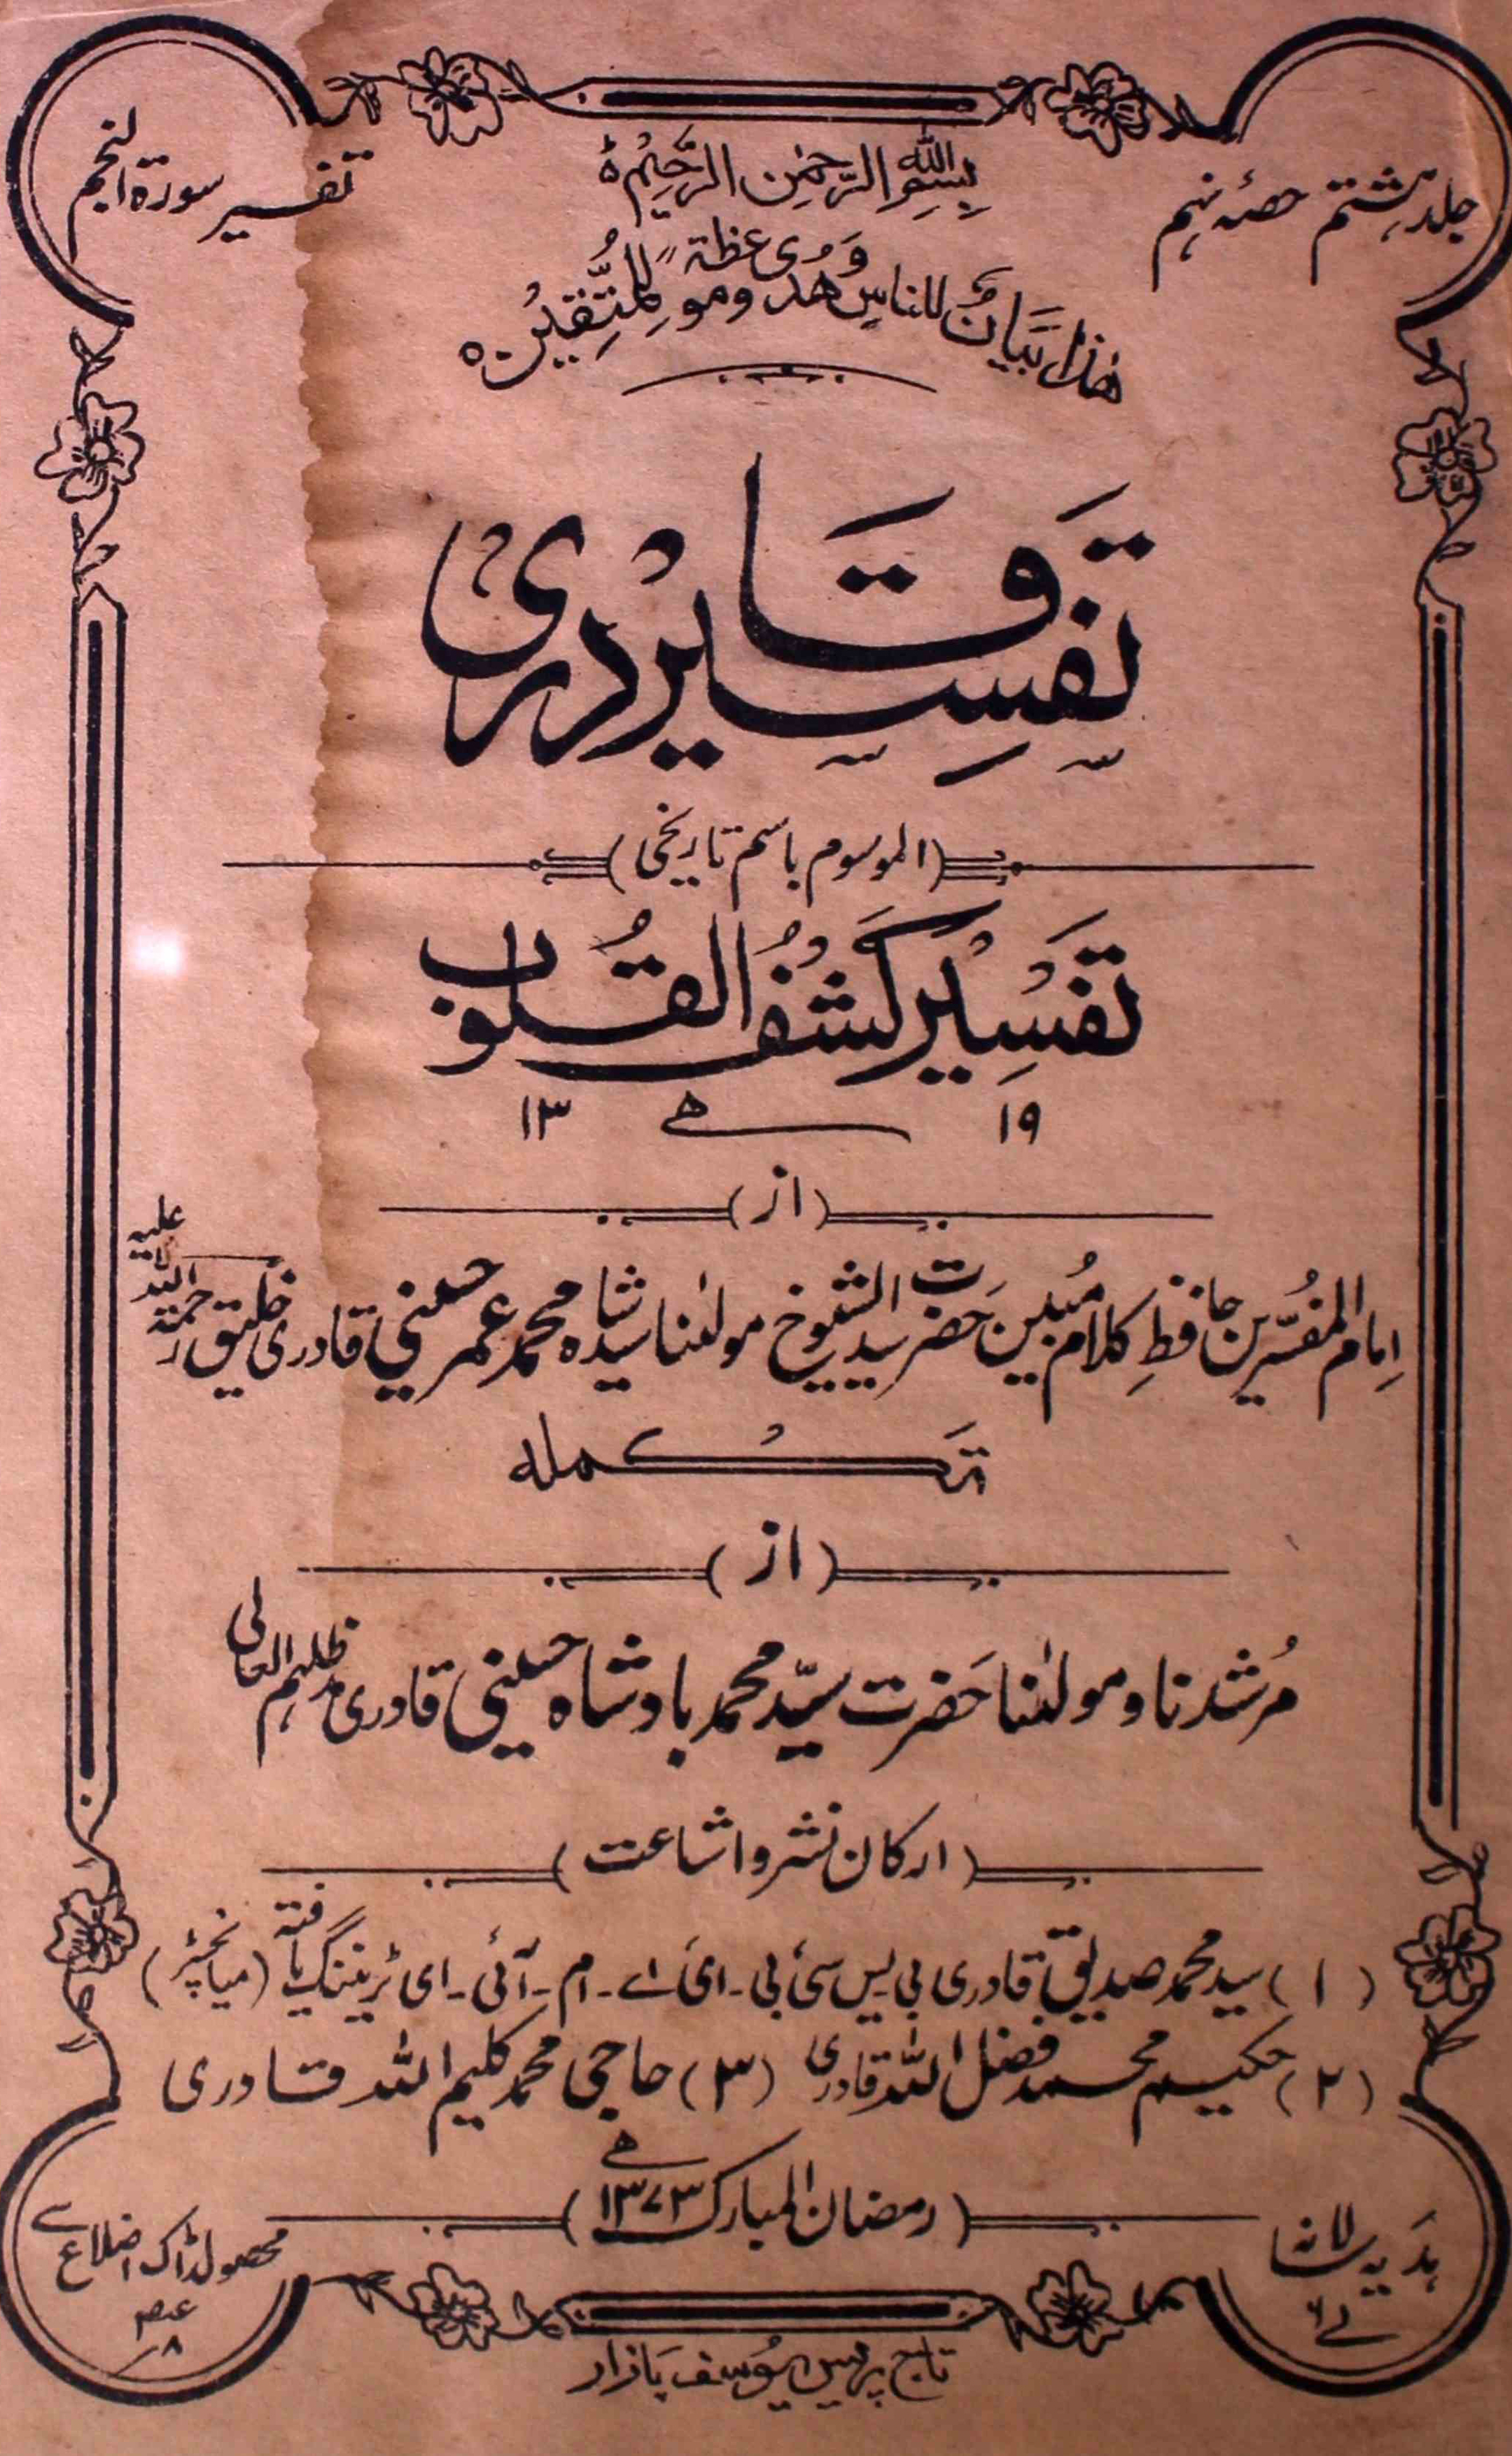 جلد ہشتم حصۂ نہم
بِسْمِ اللّٰهِ الرَّحْمٰنِ الرَّحِيْمِ ہ
تفسیر سورۃ النجم
هٰذَا بَيَانٌ لِّلنَّاسِ وَهُدًى وَّمَوْعِظَةٌ لِّلْمُتَّقِيْنَ ہ
تفسیر قادری
(الموسوم باسم تاریخی)
تَفْسِیْر کَشْفُ الْقُلُوْب
۱۹ ھ ۱۳
(از)
اِمام المفسّرین حافظِ کلام مُبین حَضرت سید الشیوخ مولٰنا سید شاہ محمد عمر حسینی قادری خلیق رحمۃ اللہ علیہ
تکملہ
(از)
مُرشدنا و مولٰنا حَضرت سیّد محمد بادشاہ حسینی قادری مدظلہم العالی
(ارکان نشر و اشاعت)
(۱) سید محمد صدیق قادری بی یس سی بی۔ ای اے۔ ام۔ آئی۔ ای ٹریننگ یافتہ (میانچسٹر)
(۲) حکیم محمد فضل اللہ قادری (۳) حاجی محمد کلیم اللہ قادری
(رمضان المبارک ۱۳۷۳ھ)
ہَدیہ سالانہ
محصولڈاک اضلاع سے
۸؍
تاج پریس یوسف بازار